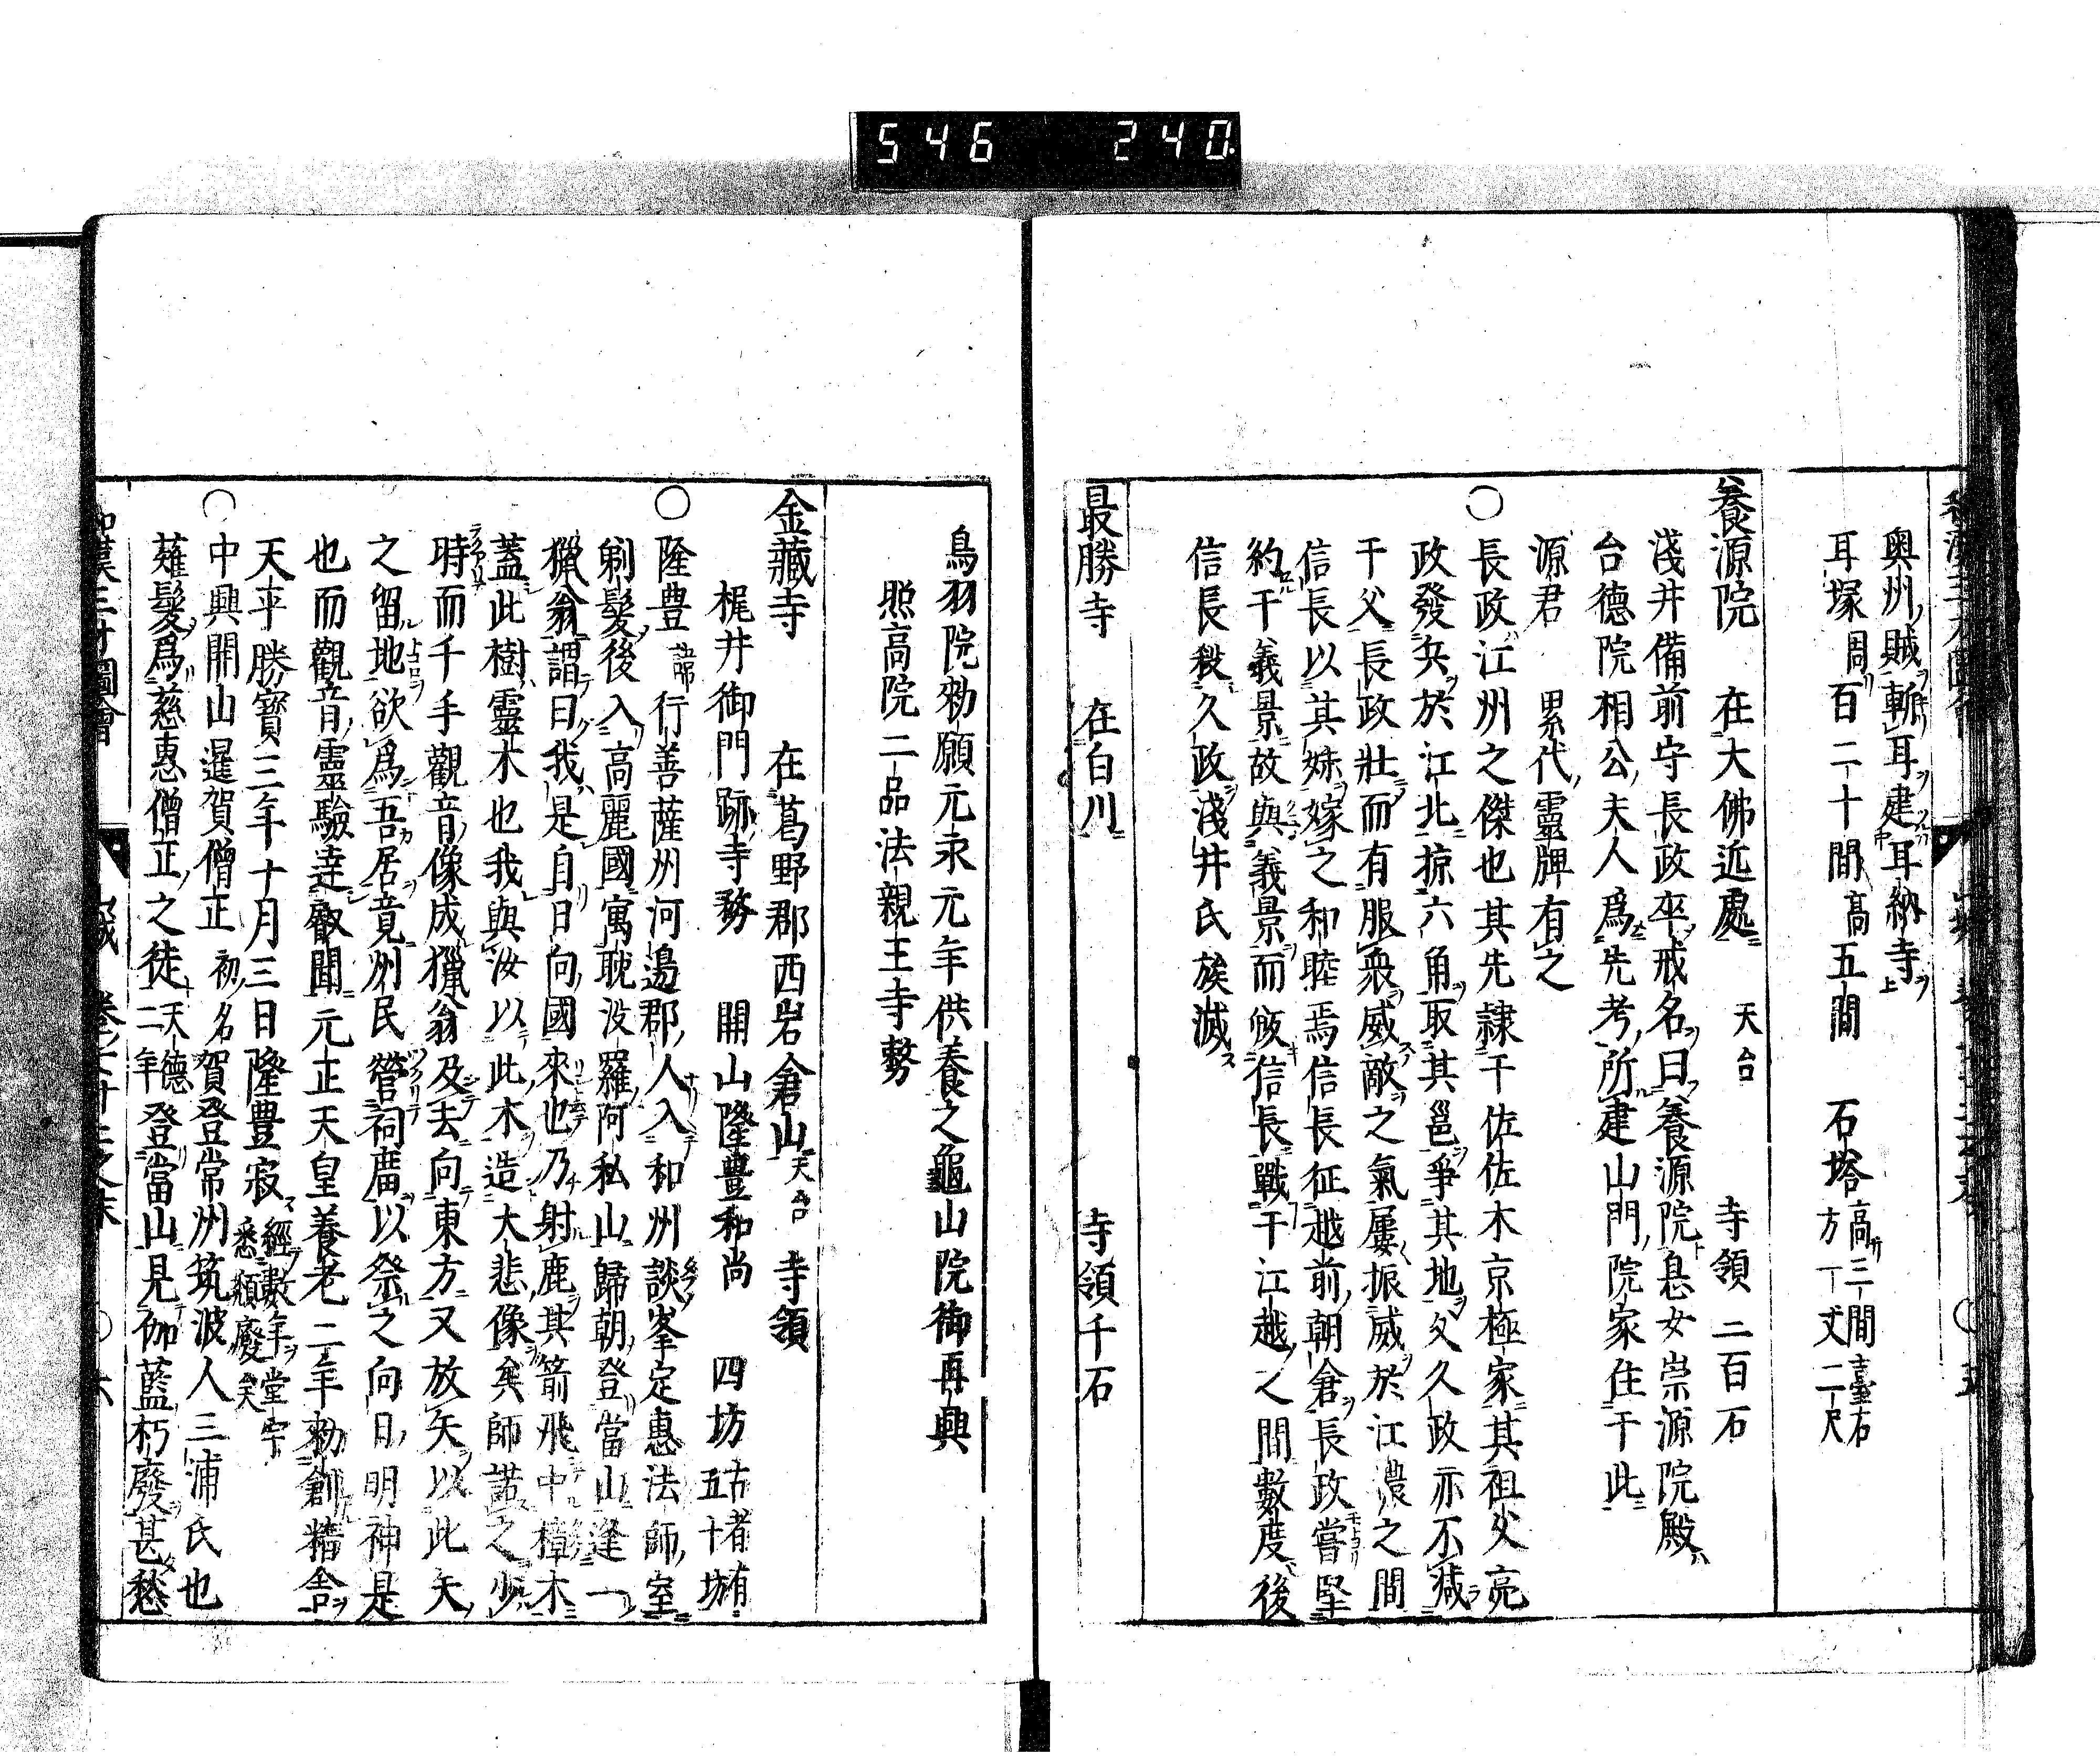 546 240
奥州賊斬耳建耳納寺
耳塚周百二十間高五間 石塔高三間臺石方一丈二尺
養源院 在大佛近處 天台 寺領 二百石
淺井備前守長政卒戒名曰養源院息女崇源院殿
台德院相公夫人爲先考所建山門院家住于此
源君 累代靈牌有之
○長政江州之傑也其先隷于佐佐木京極家其祖父亮
政發兵於江北掠六角取其邑爭其地父久政亦不減
于父長政壯而有服衆威敵之氣屢振威於江濃之間
信長以其妹嫁之和睦焉信長征越前朝倉長政嘗堅
約于義景故與義景而皈信長戰于江越之間數度後
信長殺久政淺井氏族滅
最勝寺 在白川 寺領千石
鳥羽院勅願元永元年供養之龜山院御再興
照高院二品法親王寺務
金藏寺 在葛野郡西岩倉山 天台 寺領
梶井御門跡寺務 開山隆豊和尚 四坊古者有五十坊
○隆豊 行善薩州河邊郡人入和州談峯定惠法師室
剃髮後入高麗國寓耽没羅阿私山歸朝登當山逢一
獵翁謂曰我是自日向國來也乃射鹿其箭飛中樟木
蓋此樹靈木也我與汝以此木造大悲像矣師諾之少
時而千手觀音像成獵翁及去向東方又放矢以此矢
之留地欲爲吾居竟州民營祠廣以祭之向日明神是
也而觀音靈驗達叡聞元正天皇養老二年勅創精舍
天平勝寶三年十月三日隆豊寂經數年堂宇悉頽廢矣
○中興開山暹賀僧正初名賀登常州筑波人三浦氏也
薙髮爲慈惠僧正之徒天德二年登當山見伽藍朽廢甚愁
和漢三才圖會 山城 六